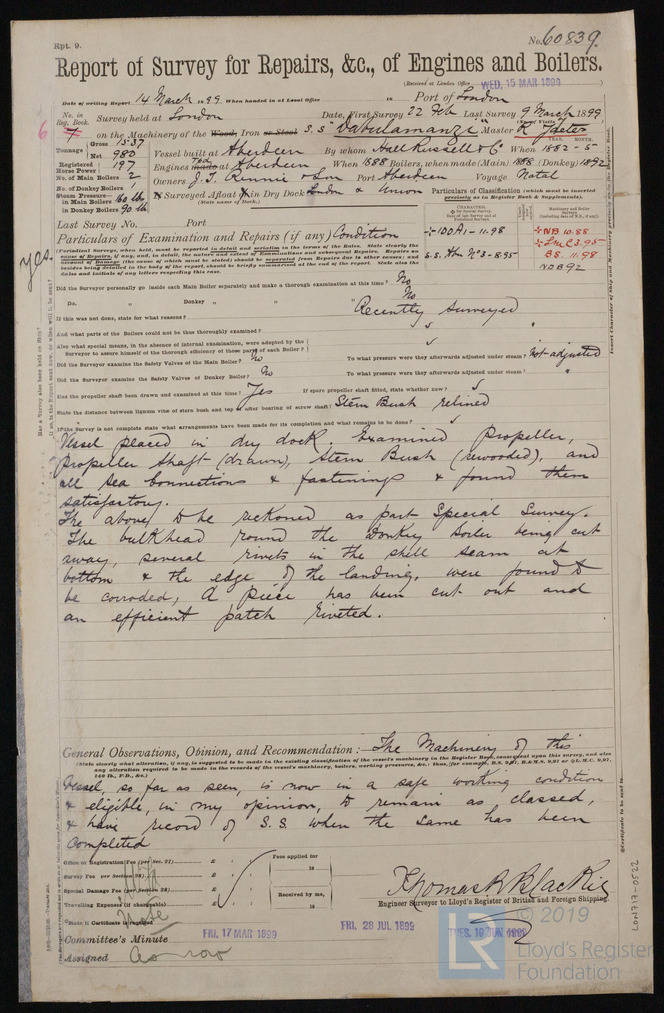 Rpt. 9.
No. 60839.
Report of Survey for Repairs, &c., of Engines and Boilers.
(Received at London Office WED. 15 MAR 1899
Date of writing Report 14 March 1899. When handed in at Local Office in Port of London
No. in Reg. Book. Survey held at London Date, First Survey 22 Feb Last Survey 9 March 1899
6 on the Machinery of the Wood, Iron or Steel S.S "Dabulamanzi" Master
Tonnage Gross 1537 Net 980
Vessel built at Aberdeen By whom Hall Russell & Co When 1882-5
YEAR. MONTH.
Registered Horse Power 197 Engines made at Aberdeen When 1888 Boilers, when made (Main) 1888 (Donkey) 1892
No. of Main Boilers 2 Owners J. T. Rennie & Son Port Aberdeen Voyage Natal
No. of Donkey Boilers 1
Steam Pressure— in Main Boilers 160 lbs in Donkey Boilers 90 lb
If Surveyed Afloat or in Dry Dock London & Union
(State name of Dock.)
Particulars of Classification (which must be inserted precisely as in Register Book & Supplements).
Last Survey No. Port
Particulars of Examination and Repairs (if any) Condition
+100A1-11.98
S.S. No 3-8.95
+NB 10.88
+LMC 3.95
B.S. 11.98
NDB 92
yes.
Did the Surveyor personally go inside each Main Boiler separately and make a thorough examination at this time? No
Do. „ Donkey „ „ „ No
If this was not done, state for what reasons? Recently Surveyed
And what parts of the Boilers could not be thus thoroughly examined?
Also what special means, in the absence of internal examination, were adopted by the
Surveyor to assure himself of the thorough efficiency of these parts of each Boiler?
Did the Surveyor examine the Safety Valves of the Main Boiler? No To what pressure were they afterwards adjusted under steam? Not adjusted
Did the Surveyor examine the Safety Valves of Donkey Boiler? No To what pressure were they afterwards adjusted under steam? "
Has the propeller shaft been drawn and examined at this time? Yes If spare propeller shaft fitted, state whether new?
State the distance between lignum vitæ of stern bush and top of after bearing of screw shaft? Stern Bush relined
If the Survey is not complete state what arrangements have been made for its completion and what remains to be done?
Vessel placed in dry dock. Examined Propeller,
Propeller Shaft (drawn), Stern Bush (rewooded), and
all Sea Connections & fastenings & found them
satisfactory.
The above to be reckoned as part Special Survey.
The bulkhead round the Donkey boiler being cut
away, several rivets in the shell seam at
bottom & the edge of the landing, were found to
be corroded, A piece has been cut out and
an efficient patch riveted.
General Observations, Opinion, and Recommendation:— The Machinery of this
Vessel, so far as seen, is now in a safe working condition
& eligible, in my opinion, to remain as classed,
& have record of S.S. when the same has been
completed
Office or Registration Fee (per Sec. 27) £ Fees applied for
Survey Fee (per Section 28) £ 18
Special Damage Fee (per Section 28) £ Received by me,
Travelling Expenses (if chargeable) £ 18
Thomas R Blackie
Engineer Surveyor to Lloyd's Register of British and Foreign Shipping.
Committee's Minute FRI. 17 MAR 1899 FRI. 28 JUL 1899
Assigned As now
LON717-0522
© 2019
LR
Lloyd's Register
Foundation